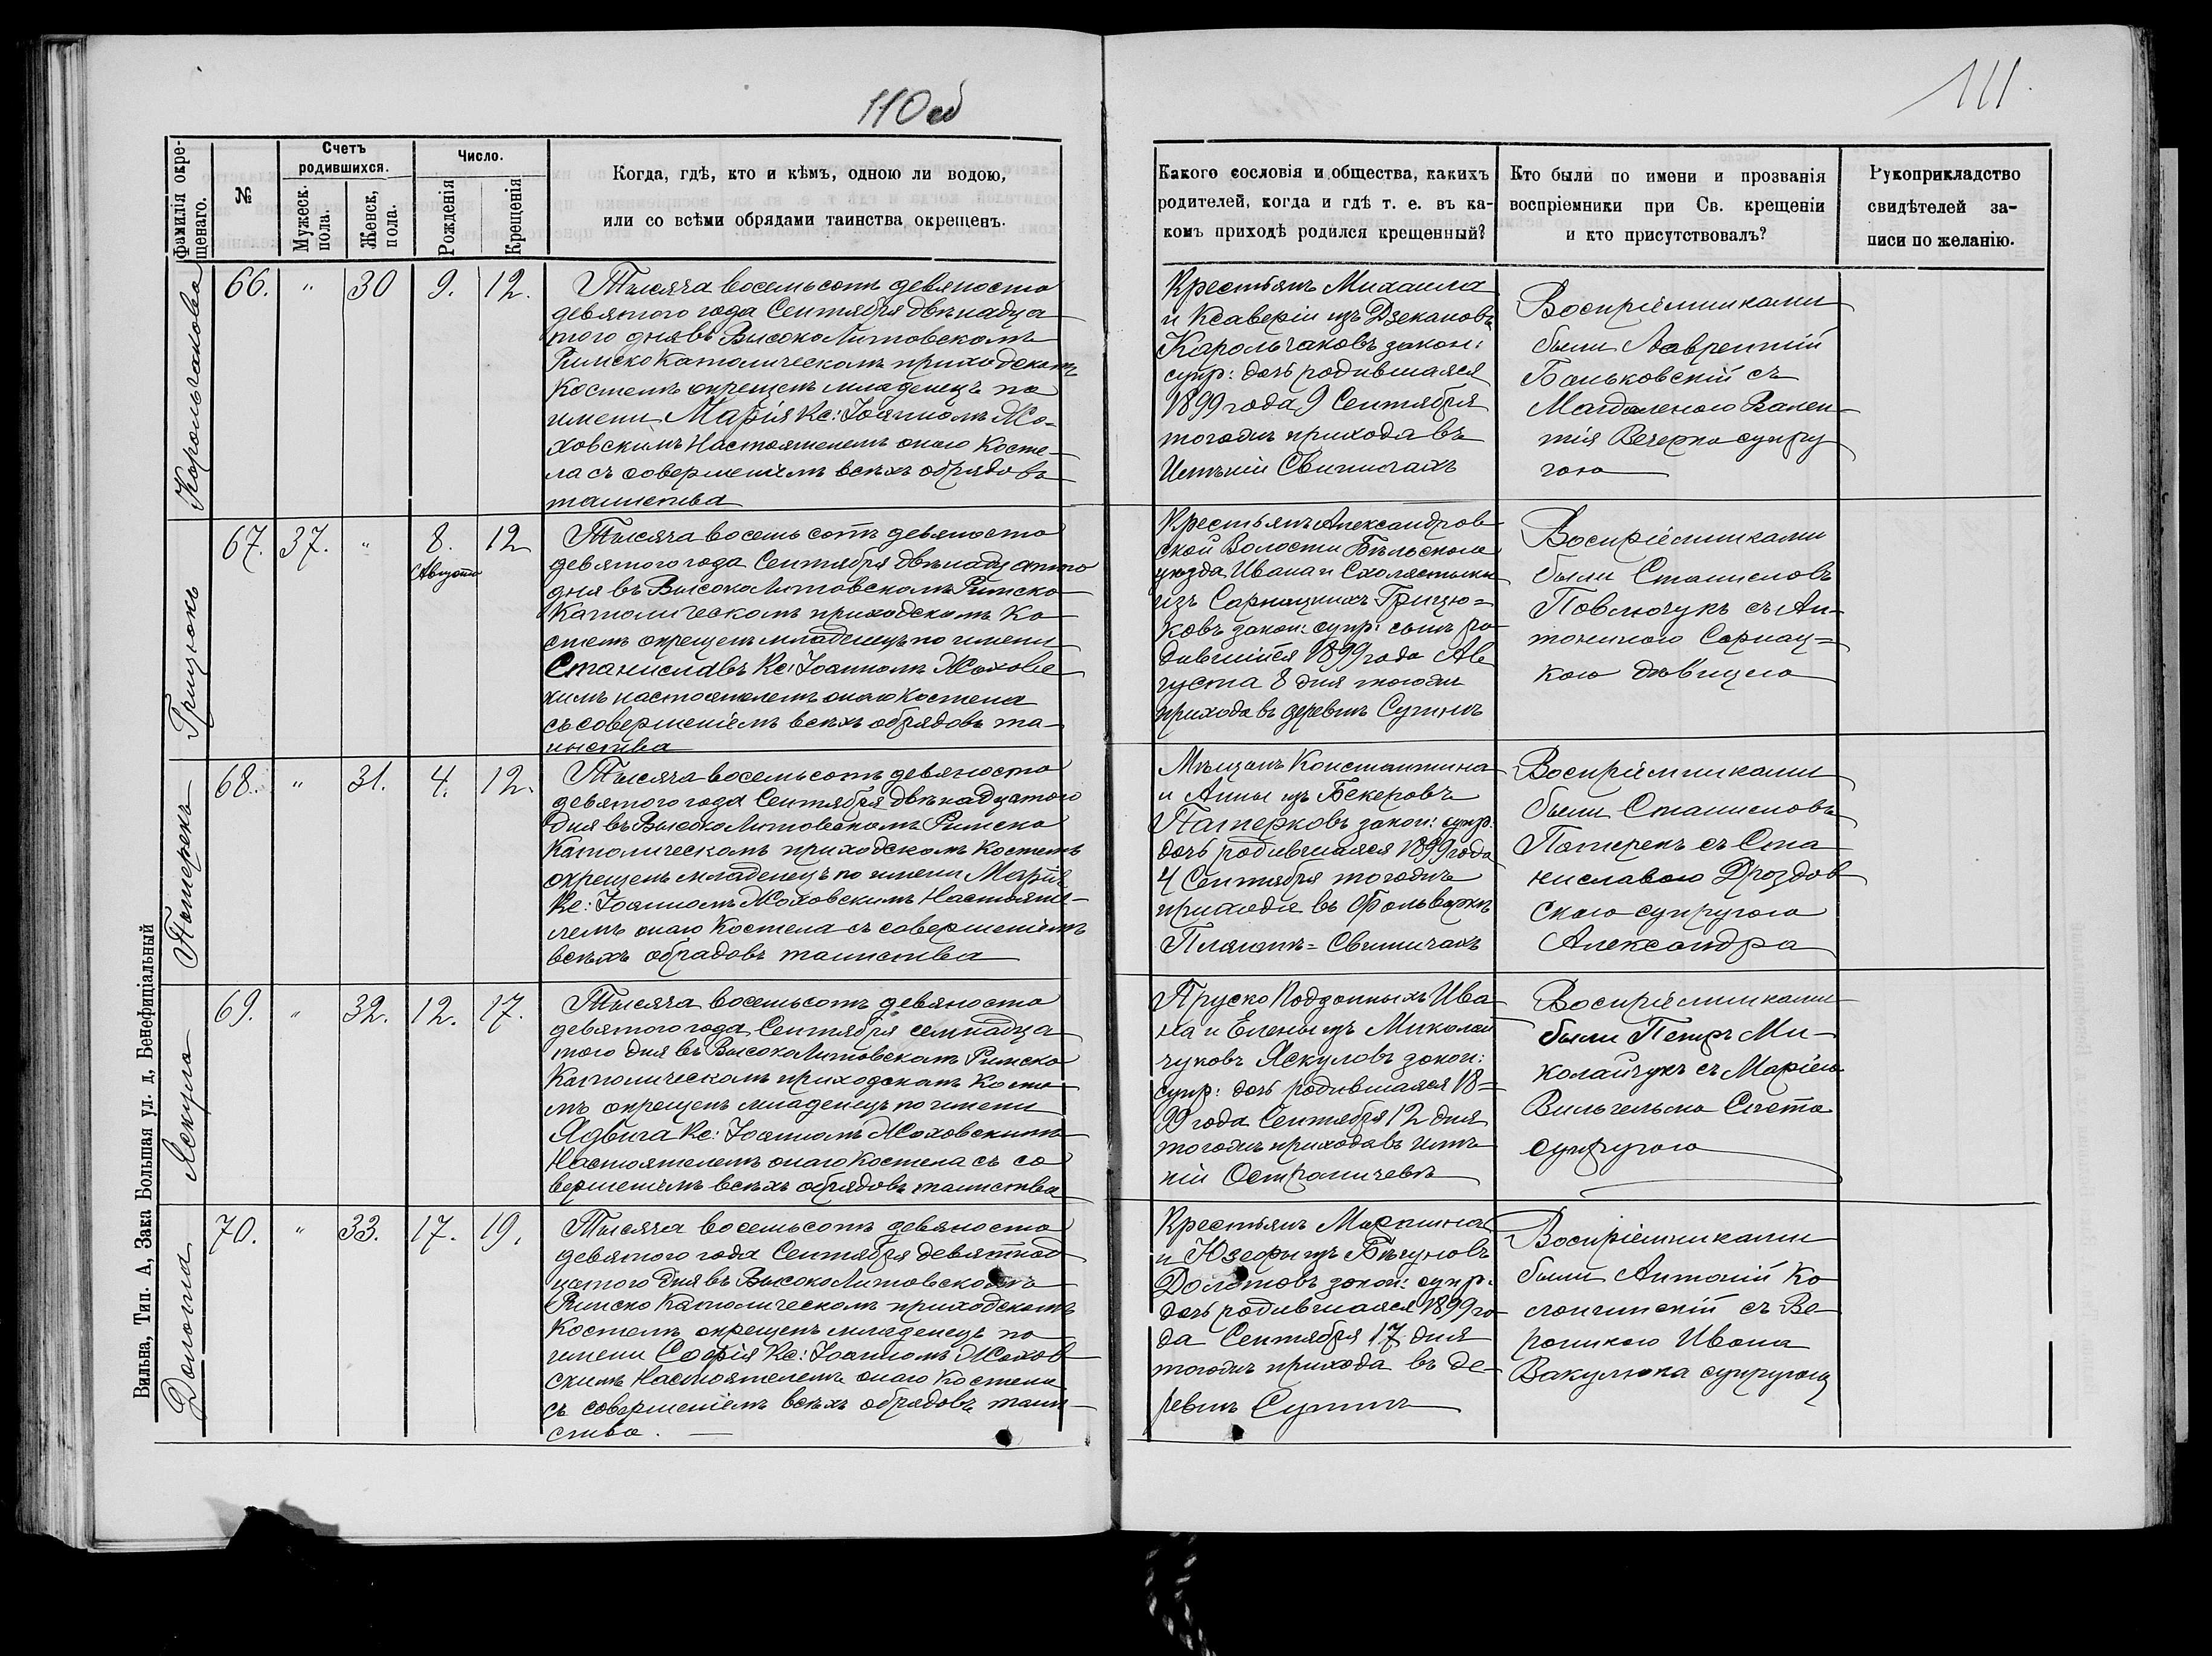 110 об
111.
Фамилія окре-
щенаго.
№
Счетъ
родившихся.
Мужеск.
пола.
Женск,
пола.
Число.
Рожденія
Крещенія
Когда, гдѣ, кто и кѣмъ, одною ли водою,
или со всѣми обрядами таинства окрещенъ.
Какого сословія и общества, какихъ
родителей, когда и гдѣ т. е. въ ка-
комъ приходѣ родился крещенный?
Кто были по имени и прозванія
воспріемники при Св. крещеніи
и кто присутствовалъ?
Рукоприкладство
свидѣтелей за-
писи по желанію.
Карольчакова
66.
"
30
9.
12.
Тысяча восемьсотъ девяносто
девятого года Сентября двѣнадца
того дня въ Высоко Литовскомъ
Римско Католическомъ приходскомъ
Костелѣ окрещенъ младенецъ по
имени Марія Кс: Іоанномъ Жо-
ховскимъ Настоятелемъ онаго Косте-
ла съ совершеніемъ всѣхъ обрядовъ
таинства
Крестьянъ Михаила
и Ксаверіи изъ Дзекановъ
Карольчаковъ закон:
супр: дочь родившаяся
1899 года 9 Сентября
тогожъ прихода въ
Имѣніи Свиничахъ
Воспріемниками
были Лаврентій
Баньковскій съ
Магдаленою Вален-
тія Вечерко супру
гою
Грицюкъ
67.
37.
"
8.
Августа
12
Тысяча восемь сотъ девяносто
девятого года Сентября двѣнадцатого
дня въ Высоко Литовскомъ Римско
Католическомъ приходскомъ Ко
стелѣ окрещенъ младенецъ по имени
Станиславъ Кс: Іоанномъ Жоховс
кимъ настоятелемъ онаго Костела
съ совершеніемъ всѣхъ обрядовъ та-
инства
Крестьянъ Александров
ской Волости Бѣльскаго
уѣзда Ивана и Схолястыки
изъ Сарнацкихъ Грицю=
ковъ закон: супр: сынъ ро-
дившійся 1899 года Ав
густа 8 дня тогожъ
прихода въ деревнѣ Сутинѣ
Воспріемниками
были Станиславъ
Павлючукъ съ Ан-
тониною Сарнац=
кою дѣвицею
Патерекъ
68.
"
31.
4.
12.
Тысяча восемьсотъ девяносто
девятого года Сентября двѣнадцатого
дня въ Высоко Литовскомъ Римско
Католическомъ приходскомъ Костелѣ
окрещенъ младенецъ по имени Марія
Кс: Іоанномъ Жоховскимъ Настояте-
лемъ онаго Костела съ совершеніемъ
всѣхъ обрядовъ таинства
Мѣщанъ Константина
и Анны изъ Бекеровъ
Патерковъ закон: супр:
дочь родившаяся 1899 года
4 Сентября тогожъ
прихода въ Фольваркѣ
Свиничахъ
Воспріемниками
были Станиславъ
Патерекъ съ Ста
ниславою Дроздов
скаго супругою
Александра
Яскула
69.
"
32.
12.
17.
Тысяча восемьсотъ девяносто
девятого года Сентября семнадца
того дня въ Высоко Литовскомъ Римско
Католическомъ приходскомъ Косте
лѣ окрещенъ младенецъ по имени
Ядвига Кс: Іоанномъ Жоховскимъ
Настоятелемъ онаго Костела съ со
вершеніемъ всѣхъ обрядовъ таинства
Пруско Подданныхъ Ива
на и Елены изъ Миколай
чуковъ Яскуловъ закон:
супр: дочь родившаяся 18=
99 года Сентября 12 дня
тогожъ прихода въ имѣ
ніи Остромичевѣ
Воспріемниками
были Петръ Ми-
колайчукъ съ Маріею
Вильгельма
супругою
Долота
70.
"
33.
17.
19.
Тысяча восемьсотъ девяносто
девятого года Сентября девятнад
цатого дня въ Высоко Литовскомъ
Римско Католическомъ приходскомъ
Костелѣ окрещенъ младенецъ по
имени Софія Кс: Іоанномъ Жохов
скимъ Настоятелемъ онаго Костела
съ совершеніемъ всѣхъ обрядовъ таин-
ства.
Крестьянъ Мартина
и Юзефы изъ Бѣгуновъ
Долотовъ закон: супр.
дочь родившаяся 1899 го
да Сентября 17 дня
тогожъ прихода въ де-
ревнѣ Сутинѣ
Воспріемниками
были Антоній Ко
съ Ве
роникою Ивана
Вакулюка супругою
Вильна, Тип. А, Зака Большая ул. д, Бенефиціальный